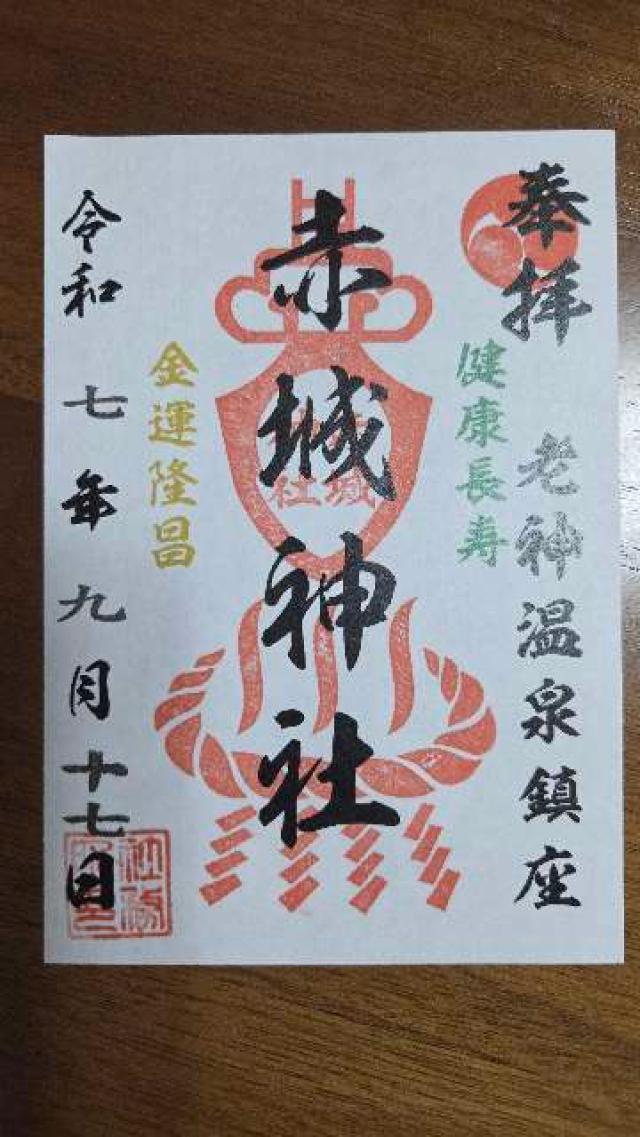 奉拝
老神温泉鎮座
健康長寿
赤城神社
金運隆昌
令和七年九月十七日